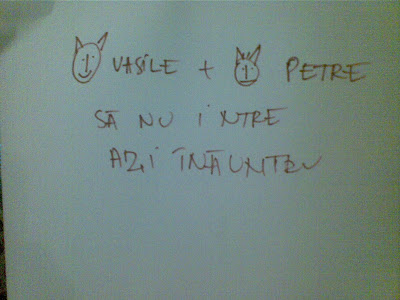 VASILE + PETRE
SĂ NU INTRE
AZI ÎNĂUNTRU